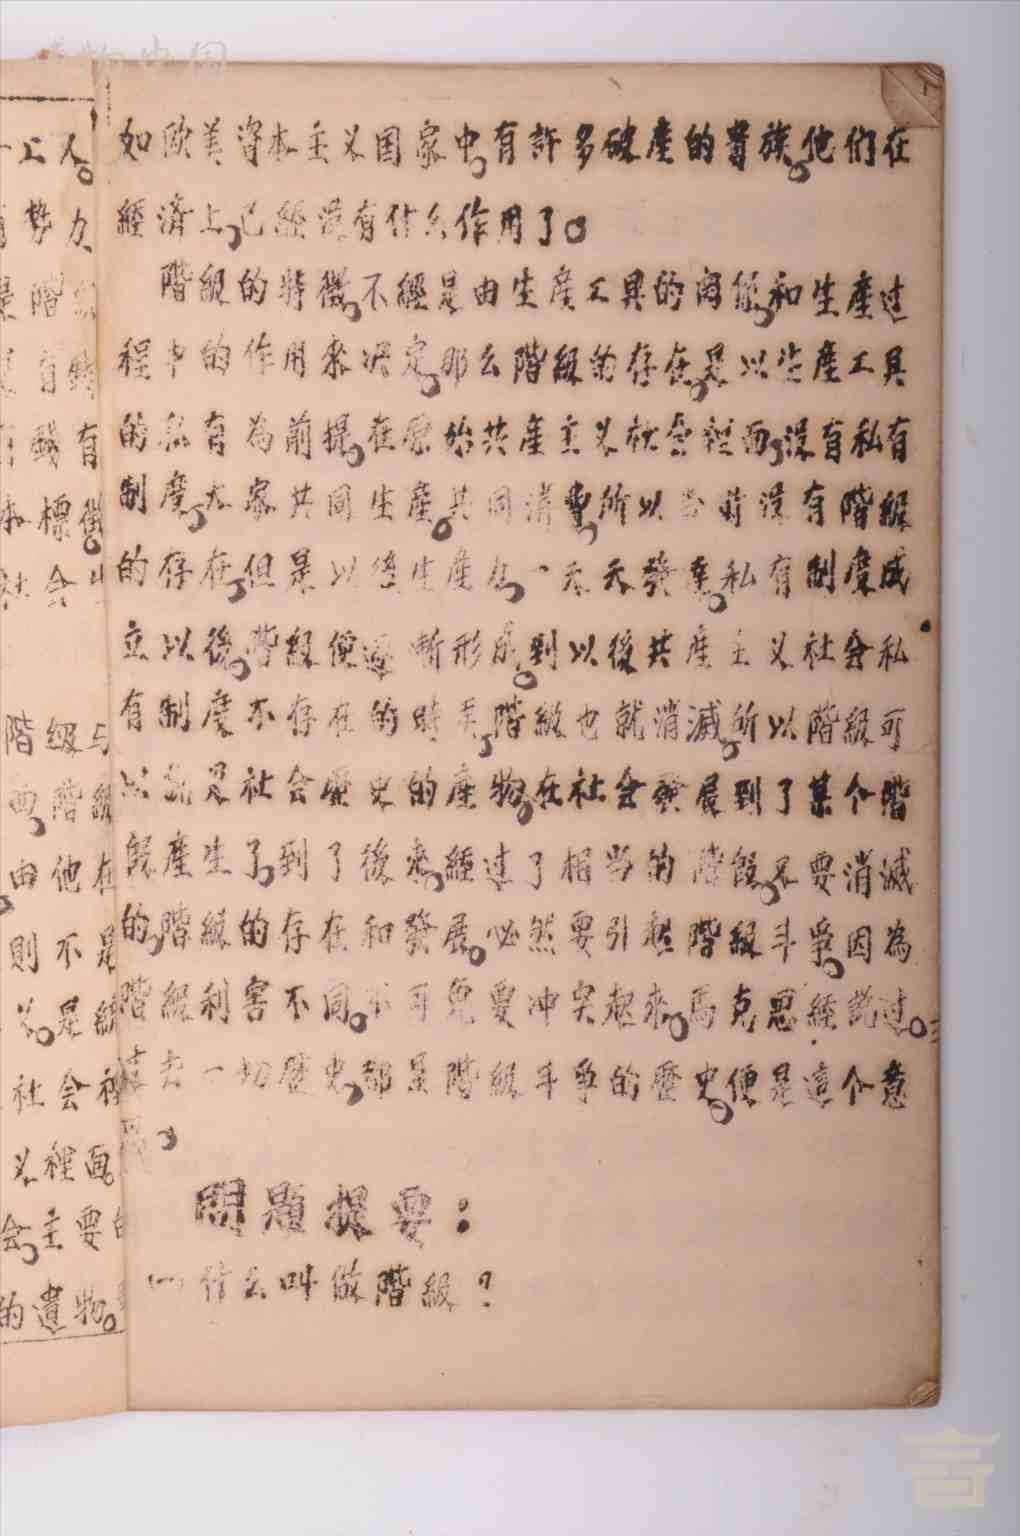 如欧美資本主义国家中,有許多破産的貴族。他們在
經濟上,已經沒有什么作用了。
階級的特徵,不經是由生産工具的関係,和生産过
程中的作用來决定,那么階級的存在,是以生産工具
的私有為前提,在原始共産主义社会裡面,沒有私有
制度,大家共同生産。共同消費,所以当时沒有階級
的存在,但是以後生産力,一天天發達,私有制度成
立以後,階級便逐漸形成。到以後共産主义社会私
有制度不存在的時候,階級也就消滅,所以階級可
以說是社会歷史的產物。在社会發展到了某个階
段產生了,到了後來,經过了相当的階段,又要消滅
的,階級的存在和發展。必然要引起階級斗爭。因為
階級利害不同。不可免要冲突起來,馬克思經說过。
过去一切歷史,都是階級斗爭的歷史,便是這个意
思,
問題提要：
一 什么叫做階級？
工人。
勢力
階級
有錢
錢有
標徵。
社会
階級与
面,階級
由他在
則不是
义。是級
社会裡
义裡面
会,主要的
的遺物。